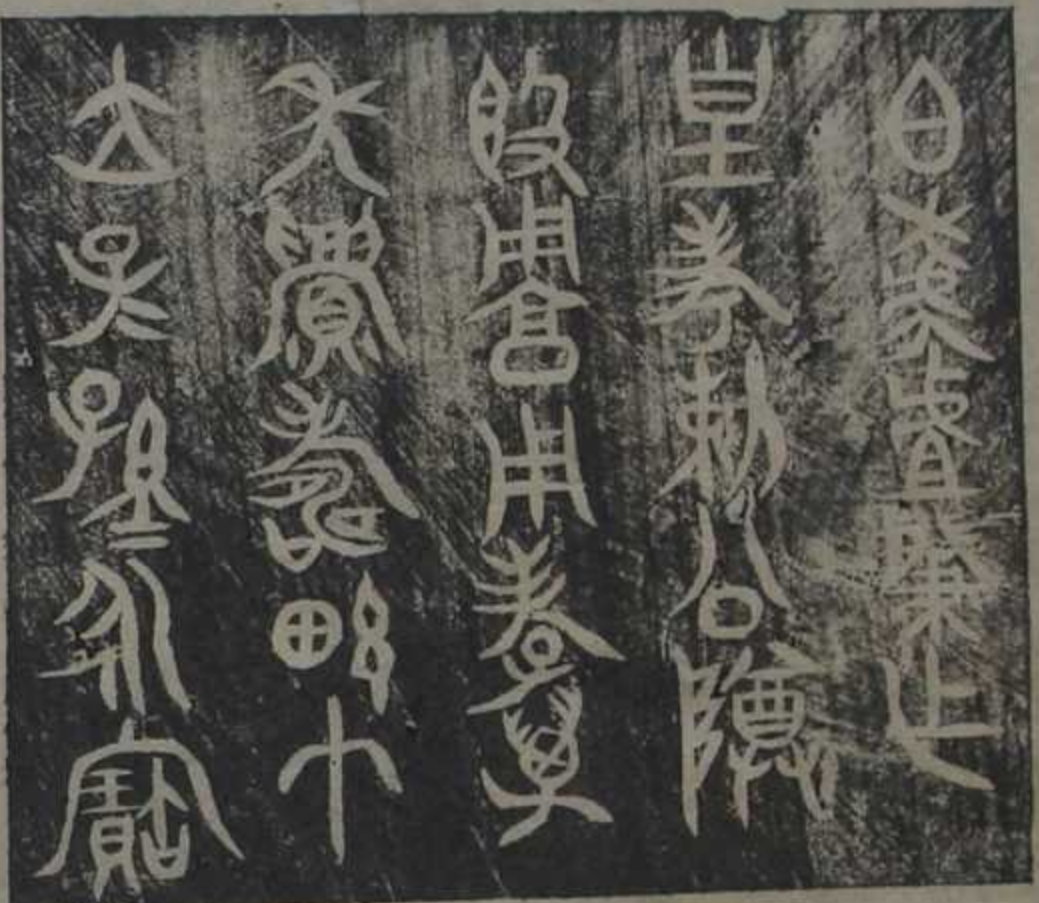 白梡虘肇乍
皇考剌公尊
簋用享用孝萬
年眉壽畯才
立子孫＝永寶